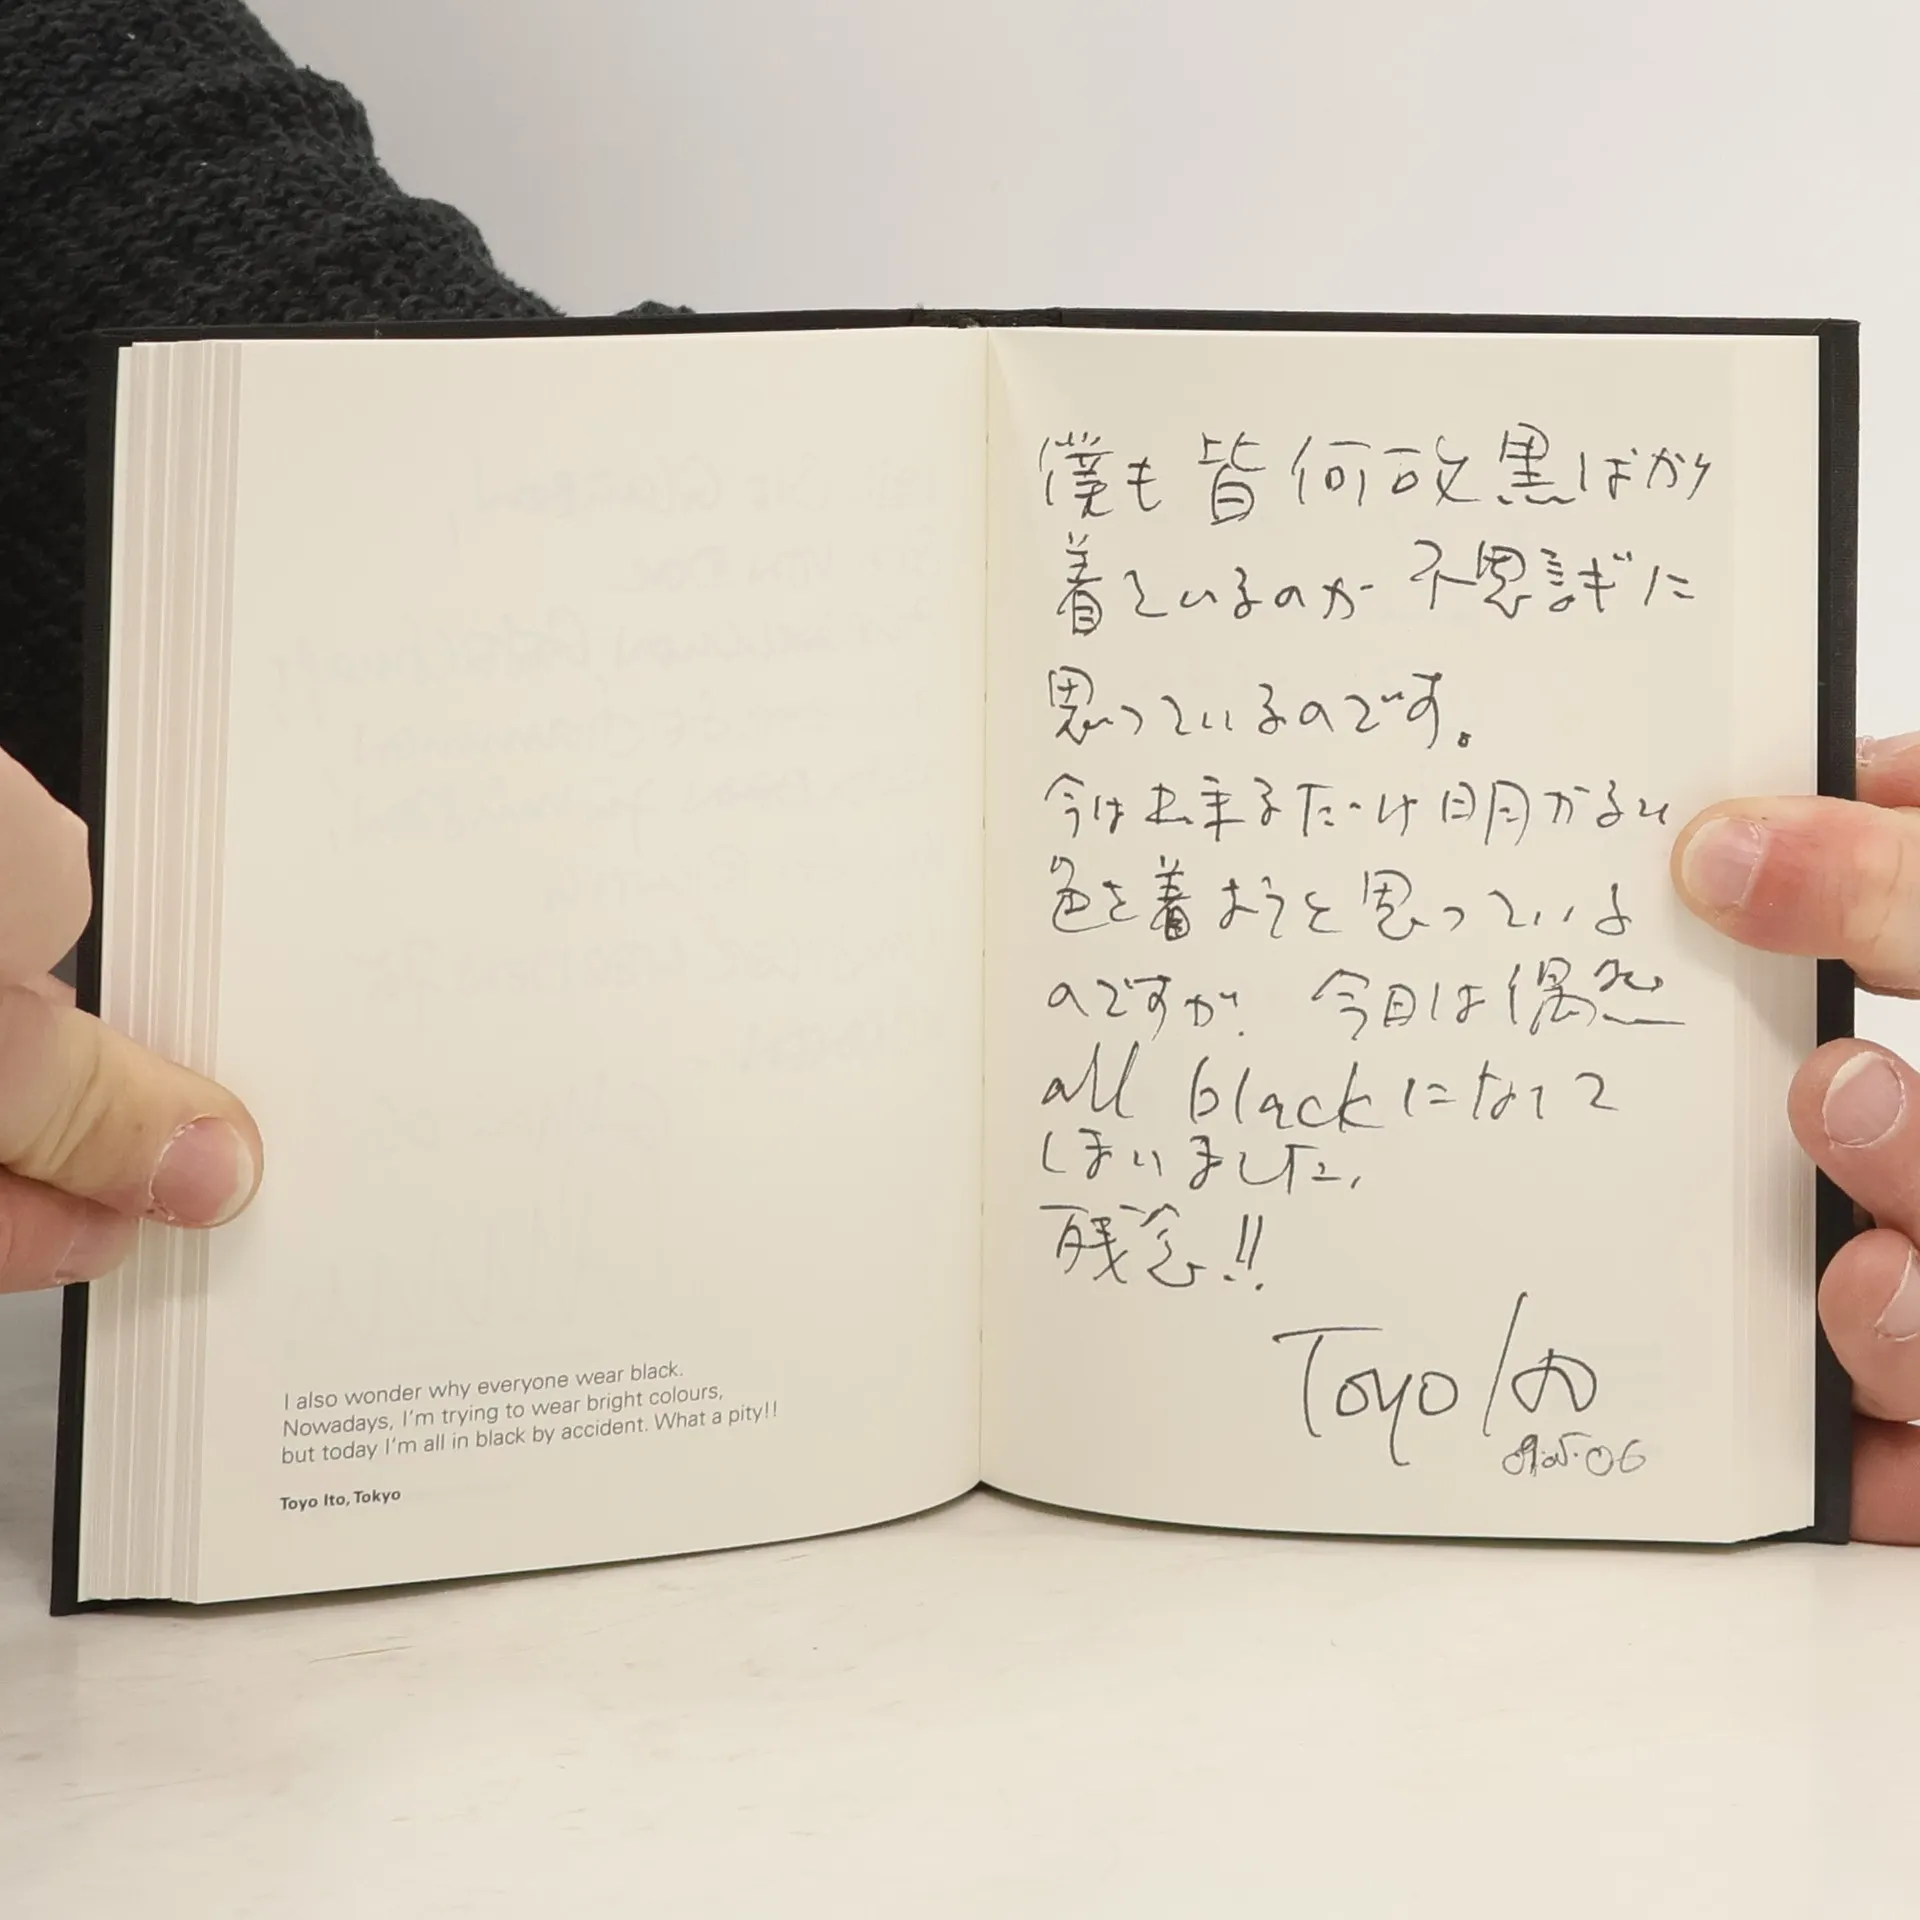 I also wonder why everyone wear black.
Nowadays, I'm trying to wear bright colours,
but today I'm all in black by accident. What a pity!!
Toyo Ito, Tokyo
僕も皆何故黒ばかり
着ているのか不思議に
思っているのです。
今は出来るだけ明かるい
色を着ようと思っている
のですが、今日は偶然
all blackになって
しまいました,
残念!!
Toyo Ito